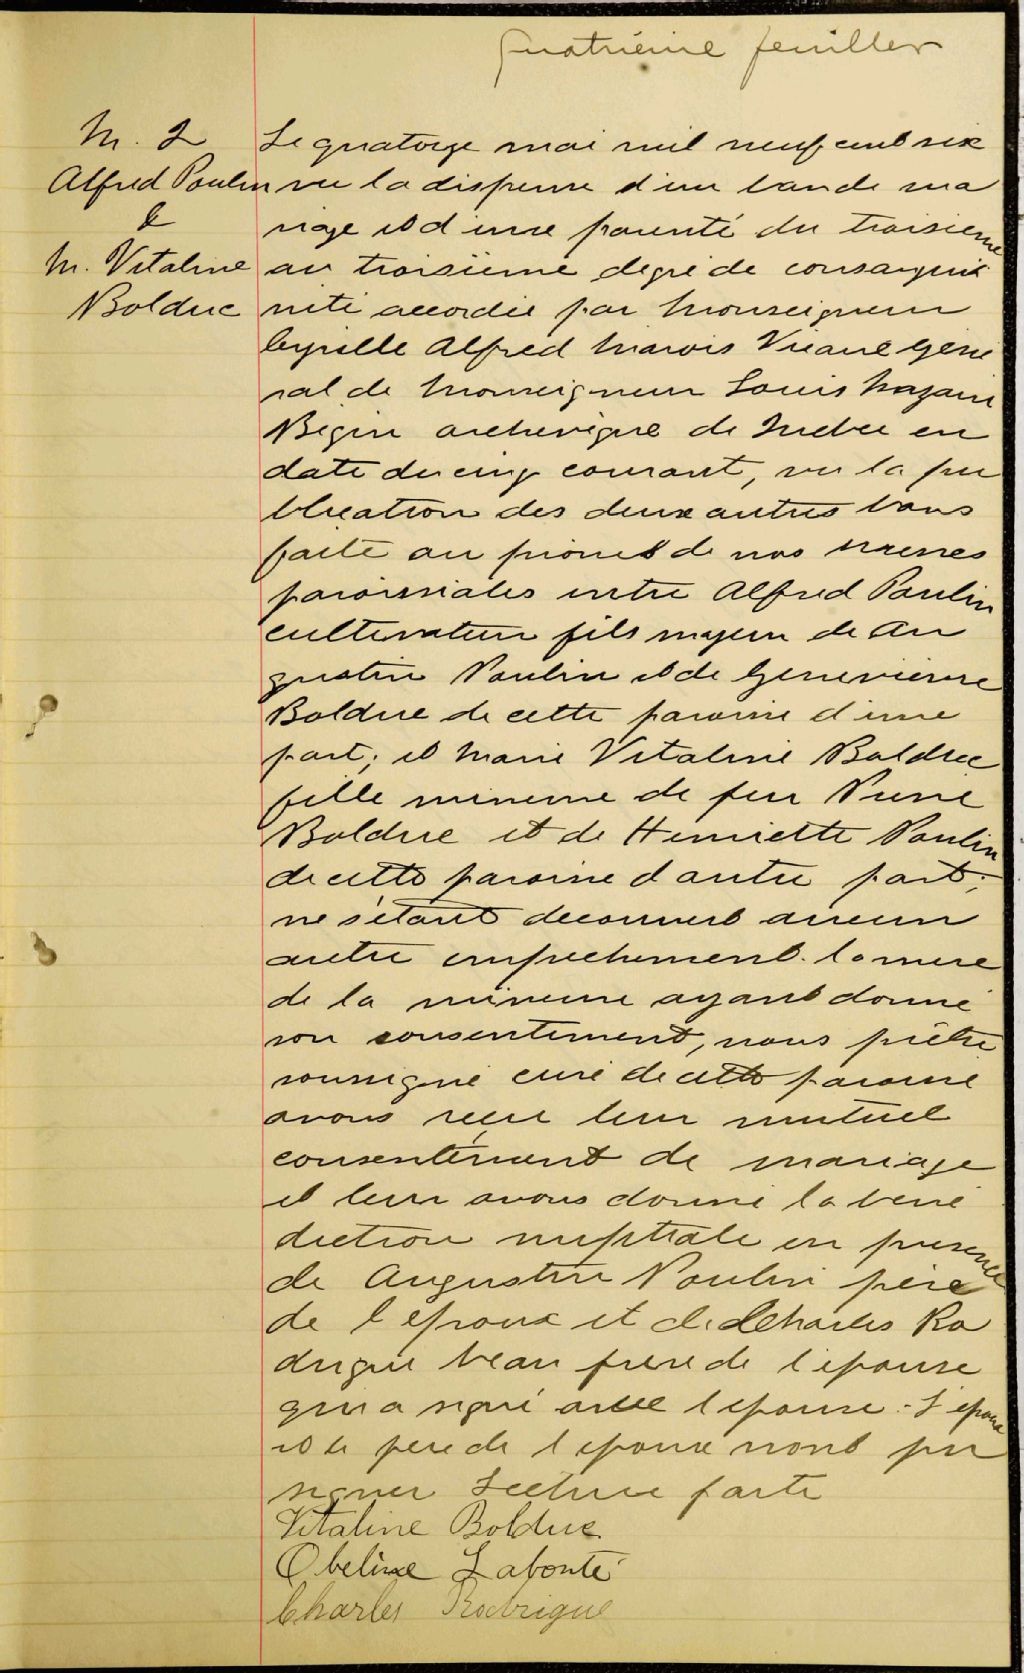 quatrième feuillet
M. 2
Alfred Poulin
&
M. Vitaline
Bolduc
Le quatorze mai mil neuf cent six
vu la dispense d'un banc de ma
riage et d'une parenté du troisième
au troisième degré de consangui
nité accordée par Monseigneur
Cyrille Alfred Marois Vicaire Géné
ral de Monseigneur Louis Nazaire
Bégin archevêque de Québec en
date du cinq courant, vu la pu
blication des deux autres bans
faite au prône de nos messes
paroissiales entre Alfred Poulin
cultivateur fils majeur de Au
gustin Poulin et de Geneviève
Bolduc de cette paroisse d'une
part; et Marie Vitaline Bolduc
fille mineure de feu Pierre
Bolduc et de Henriette Poulin
de cette paroisse d'autre part;
ne s'étant découvert aucun
autre empêchement. la mère
de la mineure ayant donné
son consentement, nous prêtre
soussigné curé de cette paroisse
avons reçu leur mutuel
consentement de mariage
et leur avons donné la béné
diction nuptiale en présence
de Augustin Poulin père
de l'époux et de Charles Ro
drigue beau frère de l'épouse
qui a signé avec l'épouse. L'époux
et le père de l'époux n'ont pu
signer Lecture faite
Vitaline Bolduc
Obeline Labonté
Charles Rodrigue